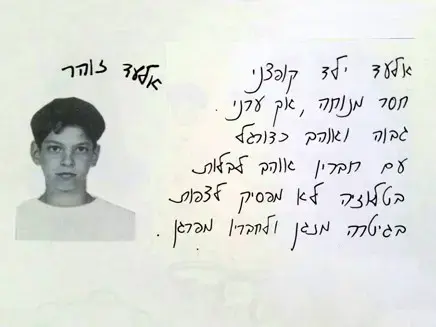 אלעד זוהר
אלעד ילד קופצני
חסר מנוחה, אך ערני.
גבוה ואוהב כדורגל
עם חבריו אוהב לבלות
בטלוויזיה לא מפסיק לצפות
בגיטרה מנגן ולחבריו מפרגן.